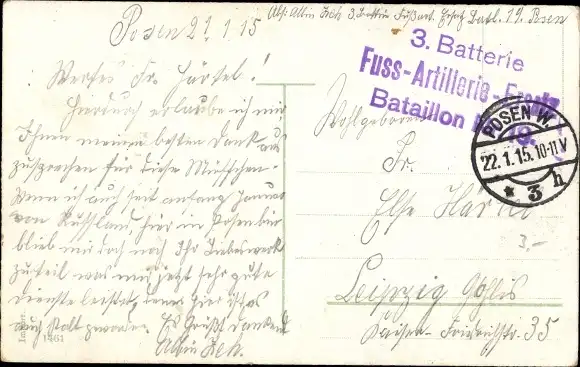 Posen 21.1.15
Abs. Albin Zeh 3. Battrie Fußart. Ersatz Batl. 19. Posen
3. Batterie
Fuss-Artillerie-Ersatz
Bataillon 19.
POSEN W.
22.1.15.10-11V
* 3 h
Wertes Fr. Härtel!
Hierdurch erlaube ich mir
Ihnen meinen besten Dank aus
zusprechen für diese Mützchen.
Wenn ich auch seit anfang Januar
von Russland, hier in Posen bin
blieb mir doch noch Ihr Liebeswerk
zuteil was mir jetzt sehr gute
dienste leistet, denn hier ist es
auch kalt geworden. Es Grüßt dankend
Albin Zeh.
Wohlgeboren
Fr.
Else Härtel
3,-
Leipzig Gohlis
Kaiser-Friedrichstr. 35
1461